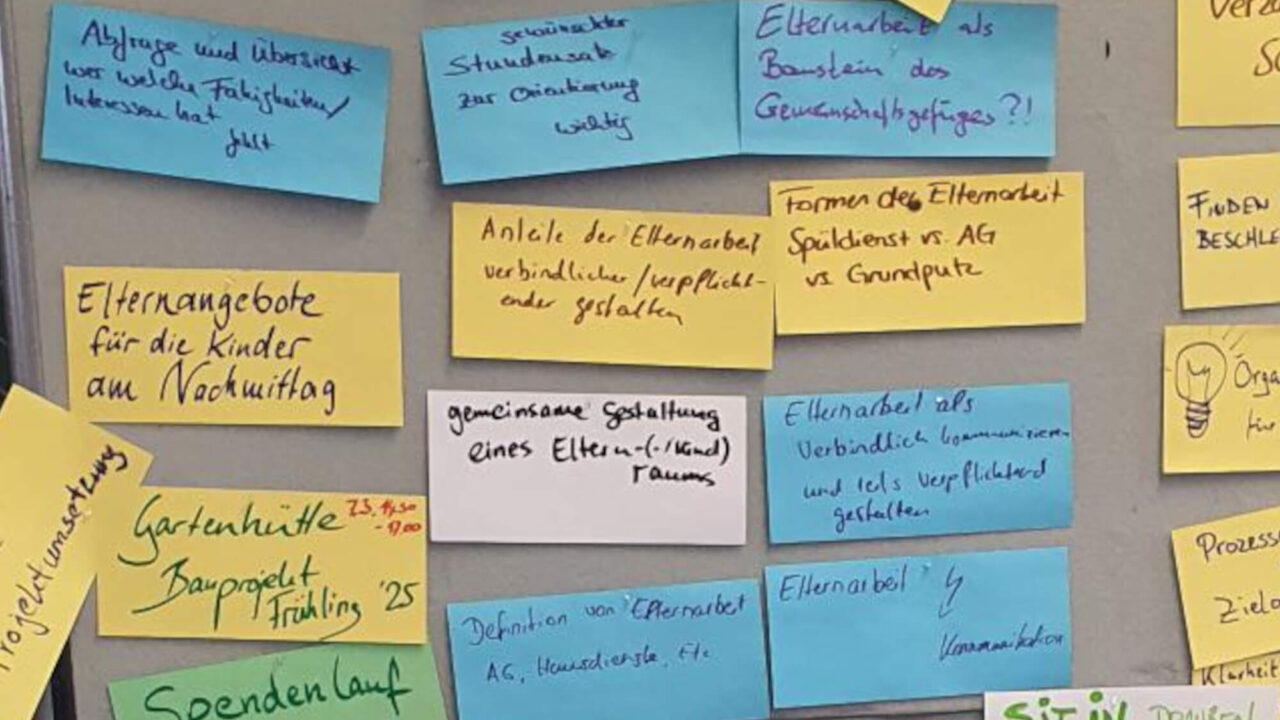 Abfrage und Übersicht
wer welche Fähigkeiten/
Interessen hat
fehlt
gewünschter
Stundensatz
zur Orientierung
wichtig
Elternarbeit als
Baustein des
Gemeinschaftsgefüges?!
Anteile der Elternarbeit
verbindlicher/verpflicht-
ender gestalten
Formen der Elternarbeit
Spüldienst vs. AG
vs Grundputz
FINDEN
BESCHLE
Elternangebote
für die Kinder
am Nachmittag
gemeinsame Gestaltung
eines Eltern-(-/Kind)
raums
Elternarbeit als
Verbindlich kommunizieren
und teils verpflichtend
gestalten
Orga
für
Projektumsetzung
Gartenhütte
Bauprojekt
Frühling '25
Prozess
Definition von Elternarbeit
AG, Hausdienste, Etc
Elternarbeit
Kommunikation
Klarheit
Spendenlauf